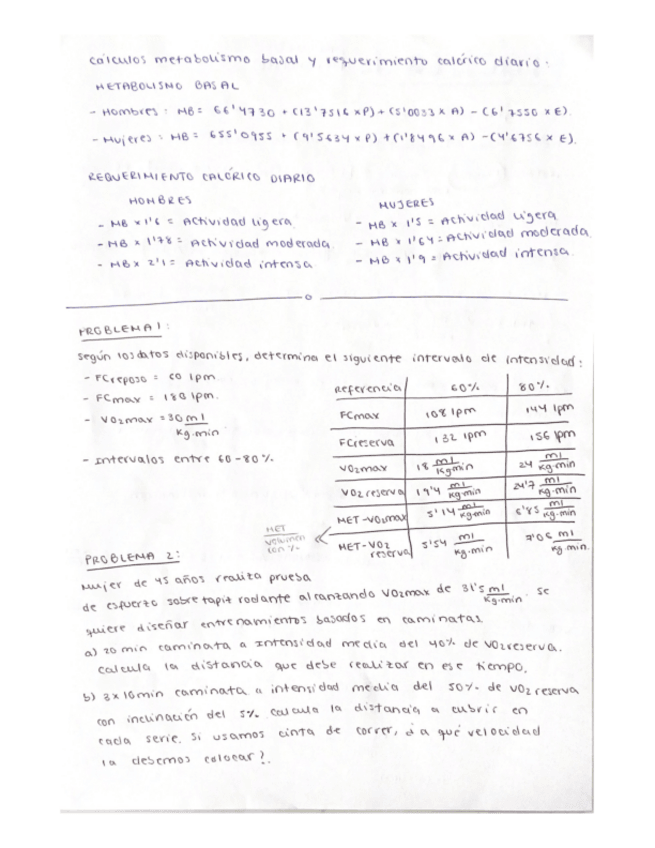 cálculos metabolismo basal y requerimiento calórico diario:
METABOLISMO BASAL
- Hombres: MB = 66'4730 + (13'7516 x P) + (5'0033 x A) - (6'7550 x E).
- Mujeres: MB = 655'0955 + (9'5634 x P) + (1'8496 x A) - (4'6756 x E).
REQUERIMIENTO CALÓRICO DIARIO
HOMBRES
- MB x 1'6 = Actividad ligera
- MB x 1'78 = Actividad moderada
- MB x 2'1 = Actividad intensa
MUJERES
- MB x 1'5 = Actividad ligera
- MB x 1'64 = Actividad moderada
- MB x 1'9 = Actividad intensa
PROBLEMA 1:
Según los datos disponibles, determina el siguiente intervalo de intensidad:
- FCreposo = 60 lpm
- FCmax = 180 lpm.
- VO2max = 30 ml/Kg·min
- Intervalos entre 60-80%
Referencia 60% 80%
FCmax 108 lpm 144 lpm
FCreserva 132 lpm 156 lpm
VO2max 18 ml/Kg·min 24 ml/Kg·min
VO2 reserva 19'4 ml/Kg·min 24'7 ml/Kg·min
MET-VO2max 5'14 ml/Kg·min 6'85 ml/Kg·min
MET-VO2 reserva 5'54 ml/Kg·min 7'05 ml/Kg·min.
MET
volumen
con %
PROBLEMA 2:
Mujer de 45 años realiza prueba
de esfuerzo sobre tapiz rodante alcanzando VO2max de 31'5 ml/Kg·min. se
quiere diseñar entrenamientos basados en caminatas.
a) 20 min caminata a intensidad media del 40% de VO2reserva.
calcula la distancia que debe realizar en ese tiempo.
b) 3x10min caminata a intensidad media del 50% de VO2 reserva
con inclinación del 5%. Calcula la distancia a cubrir en
cada serie. Si usamos cinta de correr, ¿a qué velocidad
la debemos colocar?.